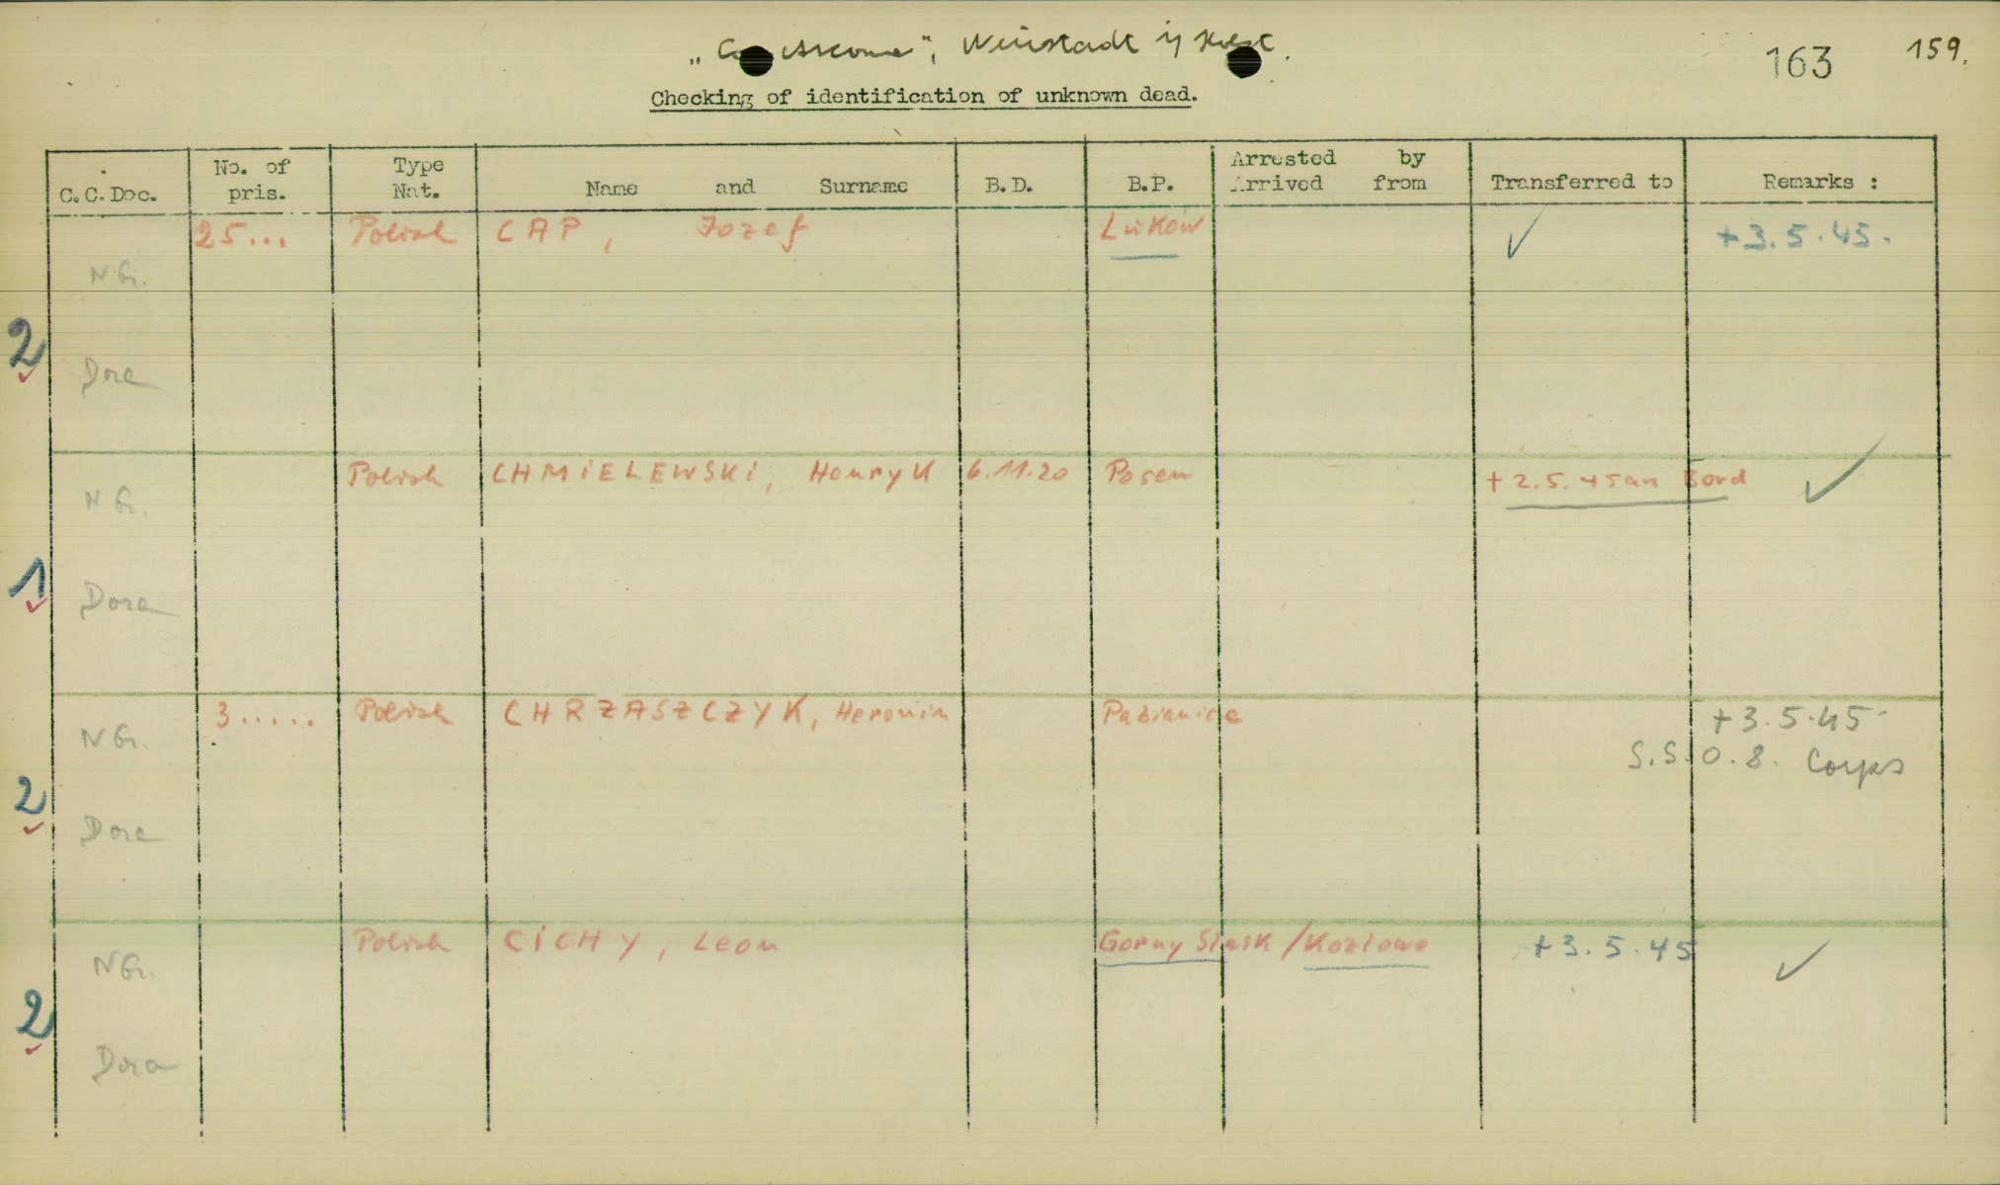 "C Arcona", Neustadt i/ Holst.
163 159.
Checking of identification of unknown dead.
C.C.Doc. No. of pris. Type Nat. Name and Surname B.D. B.P. Arrested by Arrived from Transferred to Remarks :
25... Polish CAP, Jozef Luków ✓ +3.5.45.
NG.
2
Dora
Polish CHMIELEWSKI, Henryk 6.11.20 Posen +2.5.45 an Bord ✓
NG.
1
Dora
3..... Polish CHRZASZCZYK, Heronim Pabianice +3.5.45
NG. S.S.O.8. Corps
2
Dora
Polish CICHY, Leon Gorny Slask / Kozlowo +3.5.45 ✓
NG.
2
Dora